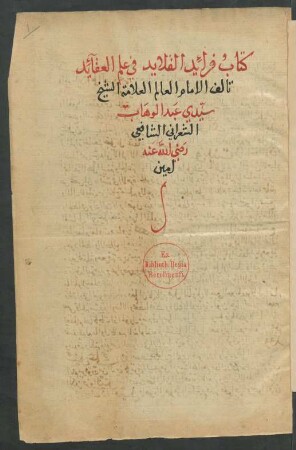 كتاب فرائد القلايد في علم العقائد
تاليف الامام العالم العلامة الشيخ
سيدي عبد الوهاب
الشعراني الشافعي
رضي الله عنه
امين
Ex
Biblioth. Regia
Berolinensi.